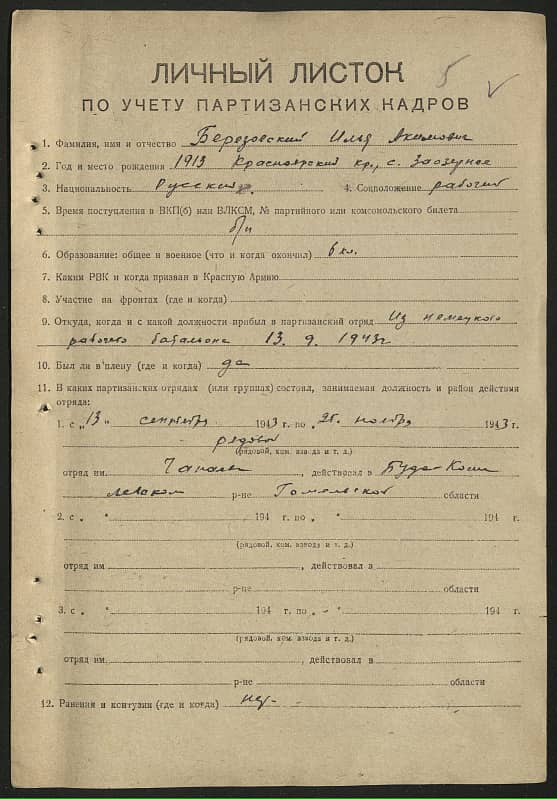 5
ЛИЧНЫЙ ЛИСТОК
ПО УЧЕТУ ПАРТИЗАНСКИХ КАДРОВ
1. Фамилия, имя и отчество Березовский Илья Акимович
2. Год и место рождения 1913 Красноярский кр., с. Заозерное
3. Национальность Русский 4. Соцположение рабочий
5. Время поступления в ВКП(б) или ВЛКСМ, № партийного или комсомольского билета
б/п
6. Образование: общее и военное (что и когда окончил) 6 кл.
7. Каким РВК и когда призван в Красную Армию
8. Участие на фронтах (где и когда)
9. Откуда, когда и с какой должности прибыл в партизанский отряд Из немецкого
рабочего батальона 13. 9. 1943г
10. Был ли в плену (где и когда) да
11. В каких партизанских отрядах (или группах) состоял, занимаемая должность и район действия
отряда:
1. с „13“ сентября 1943 г. по 26. ноября 1943 г.
рядовой
(рядовой, ком. взвода и т. д.)
отряд им. Чапаева, действовал в Буда-Коше
левском р-не Гомельской области
2. с „ “ 194 г. по „ “ 194 г.
(рядовой, ком. взвода и т. д.)
отряд им , действовал в
р-не области
3. с „ “ 194 г. по „ “ 194 г.
(рядовой, ком. взвода и т. д.)
отряд им. , действовал в
р-не области
12. Ранения и контузии (где и когда) нет